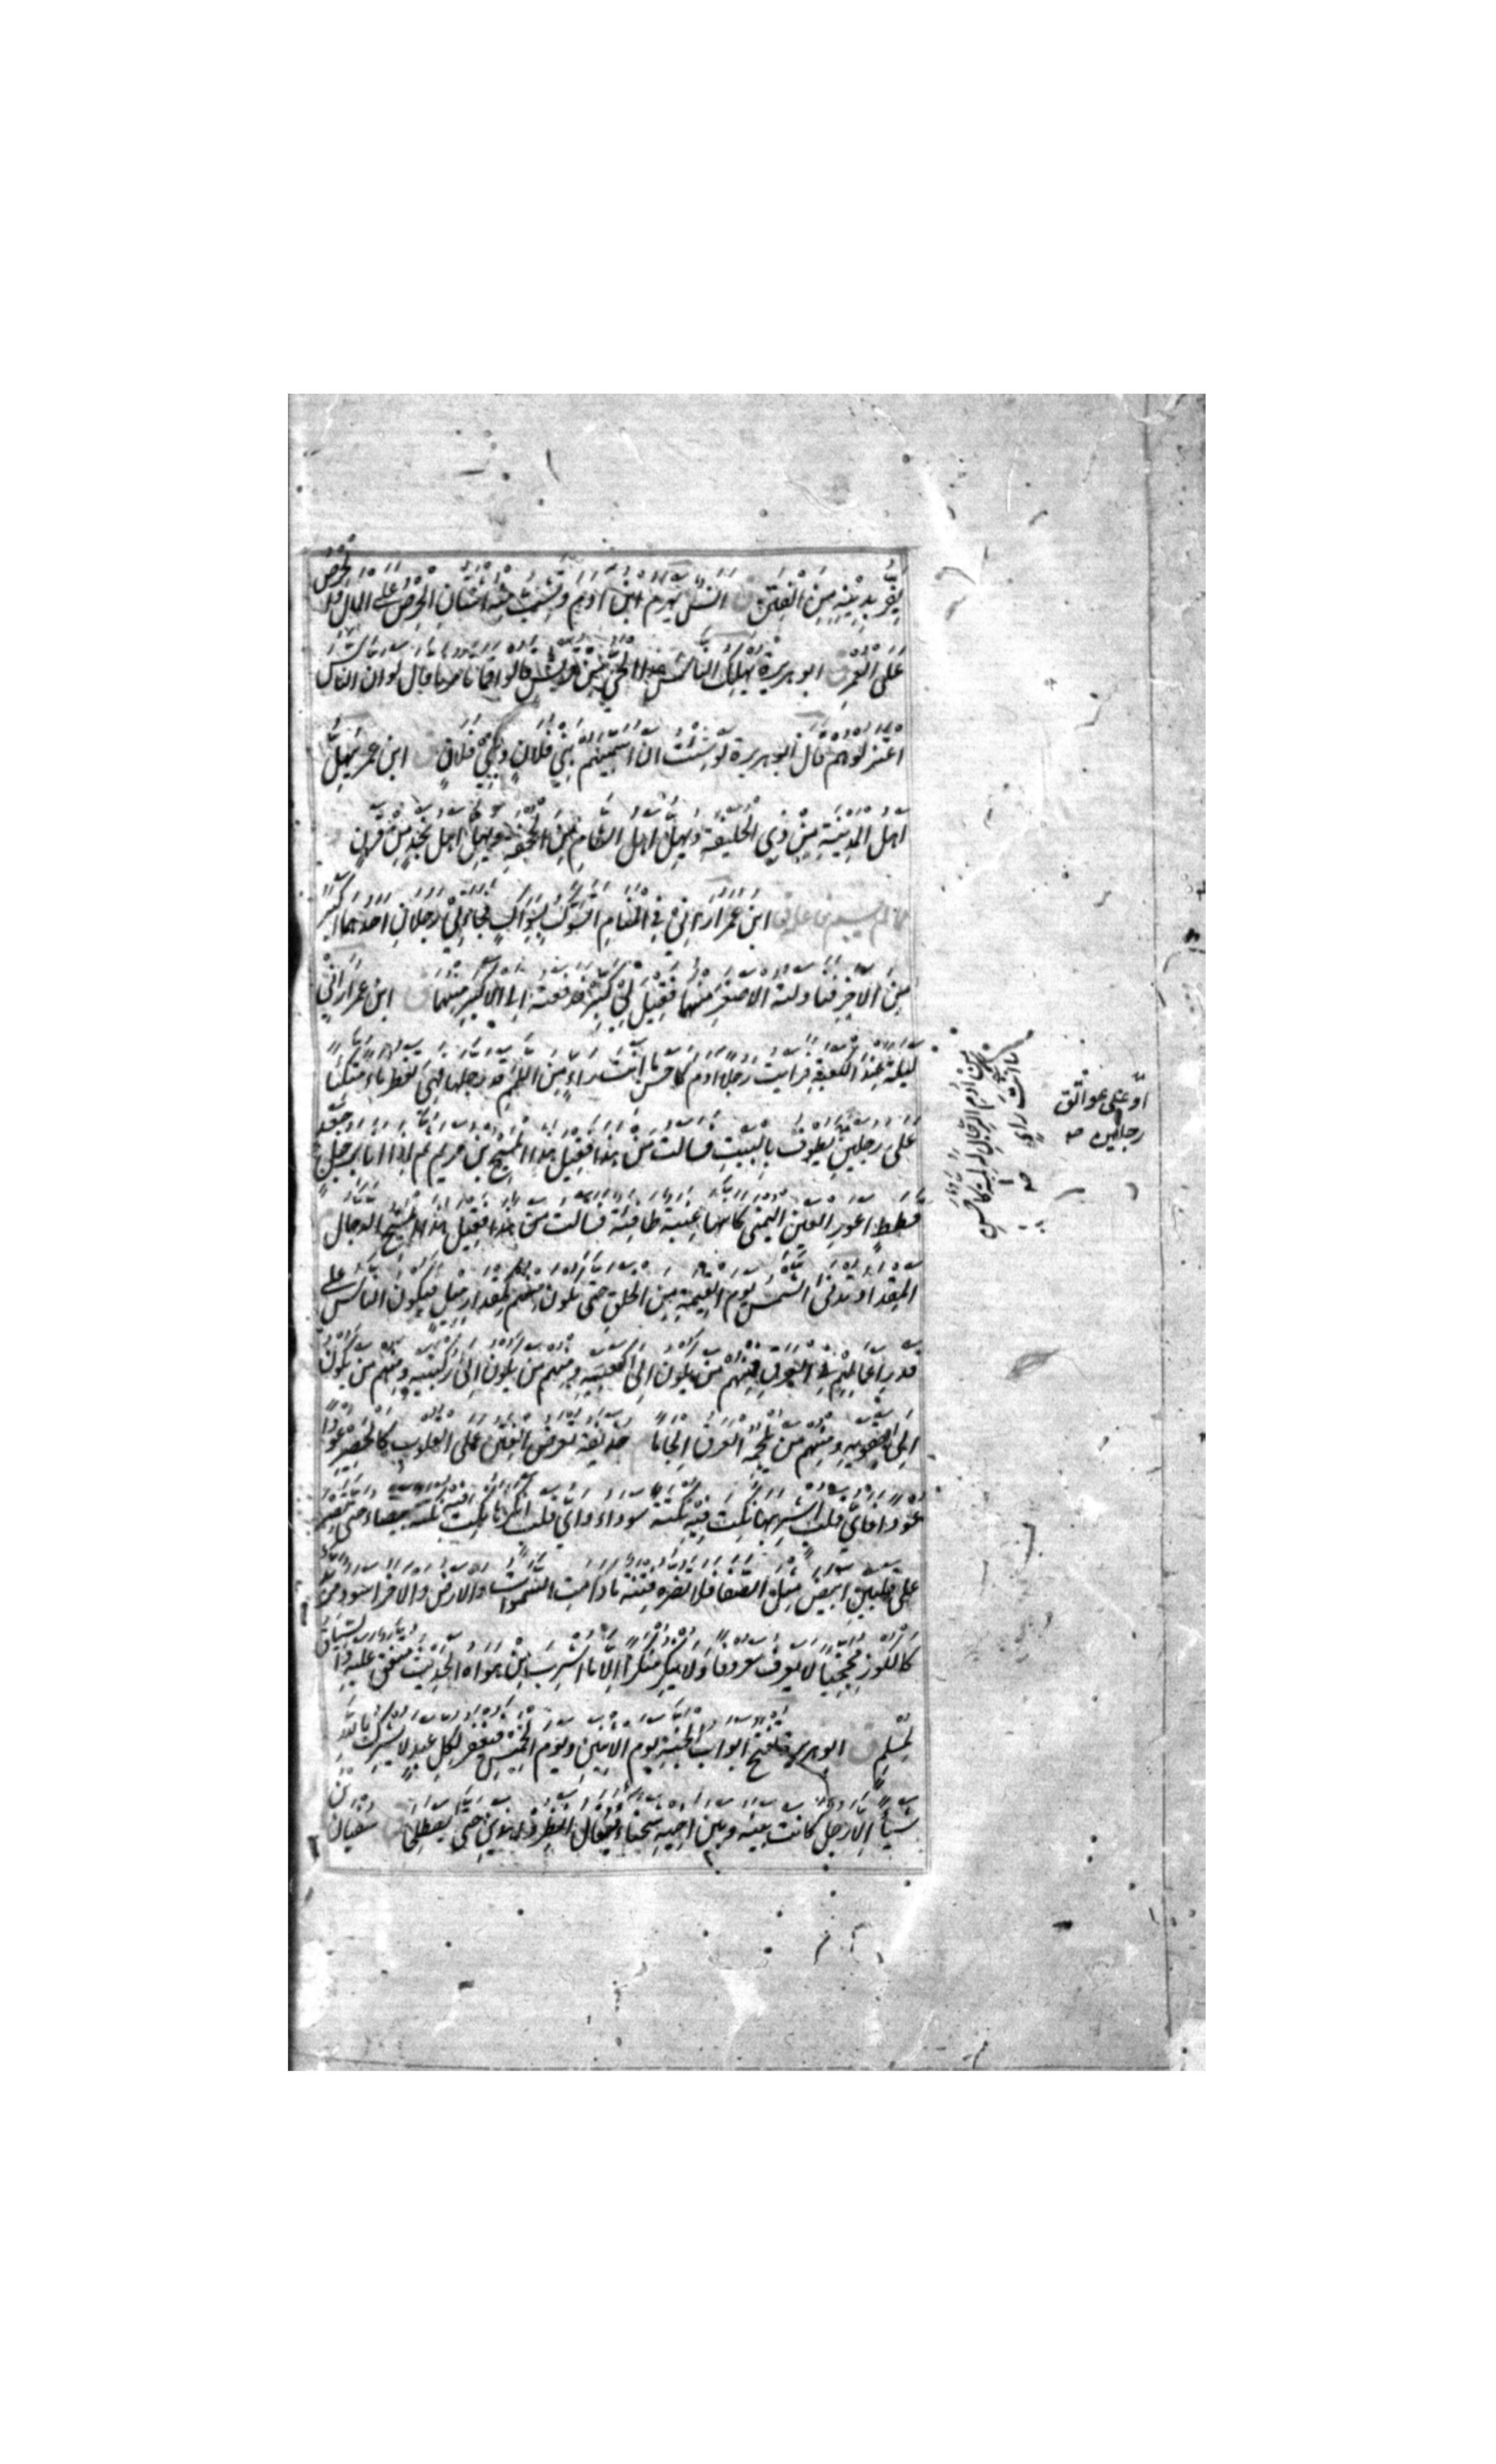 يفر بدينه من الفتن ق انس يهرم ابن آدم وتشب منه اثنان الحرص على المال والحرص
على العمر ق ابو هريرة يهلك الناس هذا الحي من قريش قالوا فما تامرنا قال لو ان الناس
اعتزلوهم قال ابو هريرة لو شئت ان اسميهم بني فلان وبني فلان ق ابن عمر يهل
اهل المدينة من ذي الحليفة ويهل اهل الشام من الجحفة ويهل اهل نجد من قرن
ابن عمر اراني في المنام اتسوك بسواك فجاءني رجلان احدهما اكبر
من الآخر فناولته الاصغر منهما فقيل لي كبر فدفعته الى الاكبر منهما ق ابن عمر اراني
ليلة عند الكعبة فرايت رجلا آدم كاحسن ما انت راء من اللمم قد رجلها فهي تقطر ماء متكئا
على رجلين يطوف بالبيت فسالت من هذا فقيل هذا المسيح بن مريم ثم اذا انا برجل جعد
قطط اعور العين اليمنى كانها عنبة طافئة فسالت من هذا فقيل هذا المسيح الدجال
المقداد تدنى الشمس يوم القيمة من الخلق حتى تكون منهم كمقدار ميل فيكون الناس على
قدر اعمالهم في العرق فمنهم من يكون الى كعبيه ومنهم من يكون الى ركبتيه ومنهم من يكون
الى حقويه ومنهم من يلجمه العرق الجاما حذيفة تعرض الفتن على القلوب كالحصير عودا
عودا فاي قلب اشربها نكتت فيه نكتة سوداء واي قلب انكرها نكتت فيه نكتة بيضاء حتى تصير
على قلبين ابيض مثل الصفا فلا تضره فتنة ما دامت السموات والارض والاخر اسود مربادا
كالكوز مجخيا لا يعرف معروفا ولا ينكر منكرا الا ما اشرب من هواه الحديث متفق عليه والسياق
لمسلم ق ابو هريرة تفتح ابواب الجنة يوم الاثنين ويوم الخميس فيغفر لكل عبد لا يشرك بالله
شيئا الا رجل كانت بينه وبين اخيه شحناء فيقال انظروا هذين حتى يصطلحا سفيان بن
او على عواتق
رجلين صح
ما انت راء
من ادم الرجال له لمة كاحسن
صح